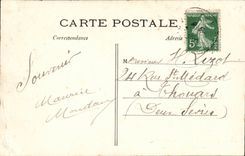 CARTE POSTALE
Correspondance
Adresse
Souvenir
Maurice
Monsieur H.
Rue St Médard
à Thouars
(Deux Sèvres)
5